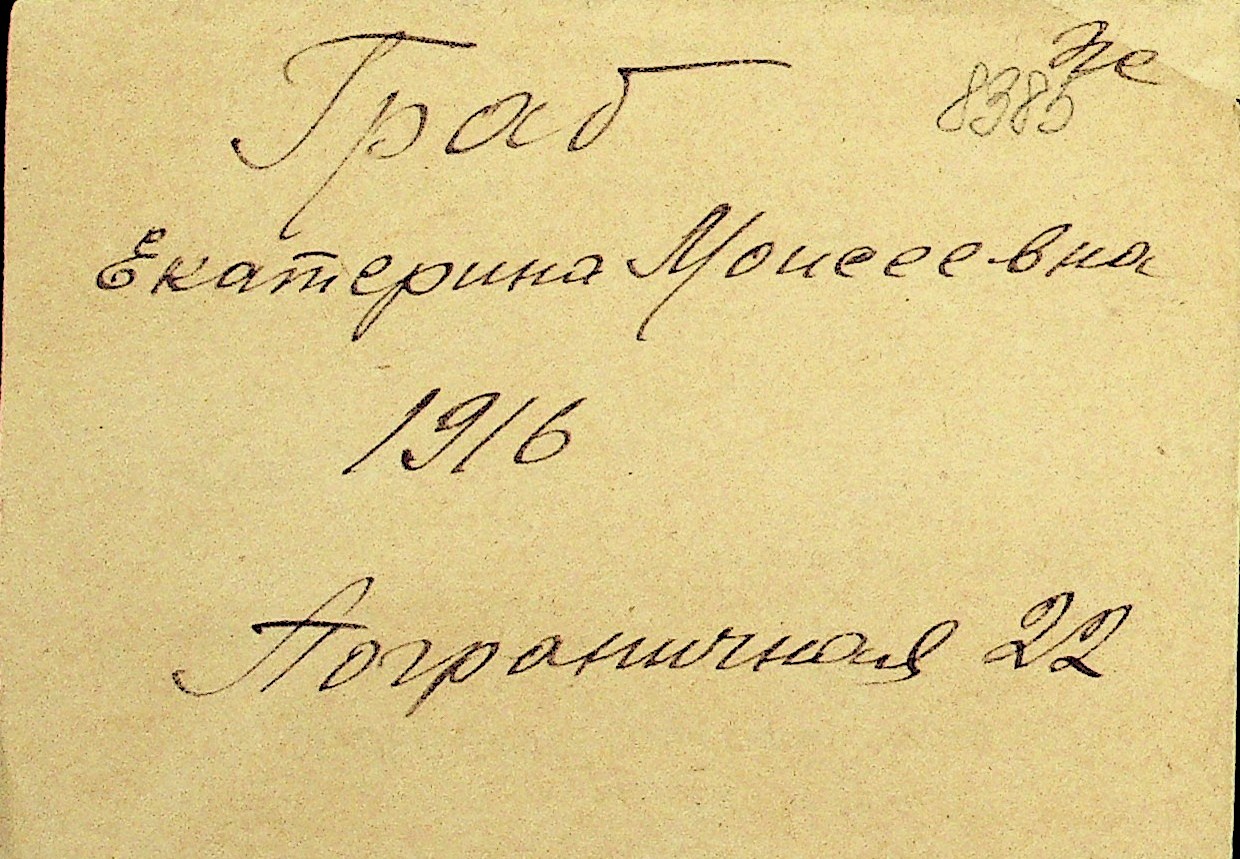 Граб
8385
Екатерина Моисеевна
1916
Пограничная 22